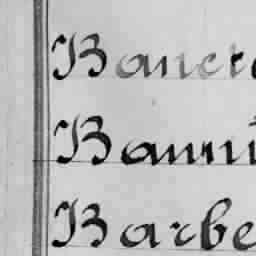 Bancr
Banni
Barbe